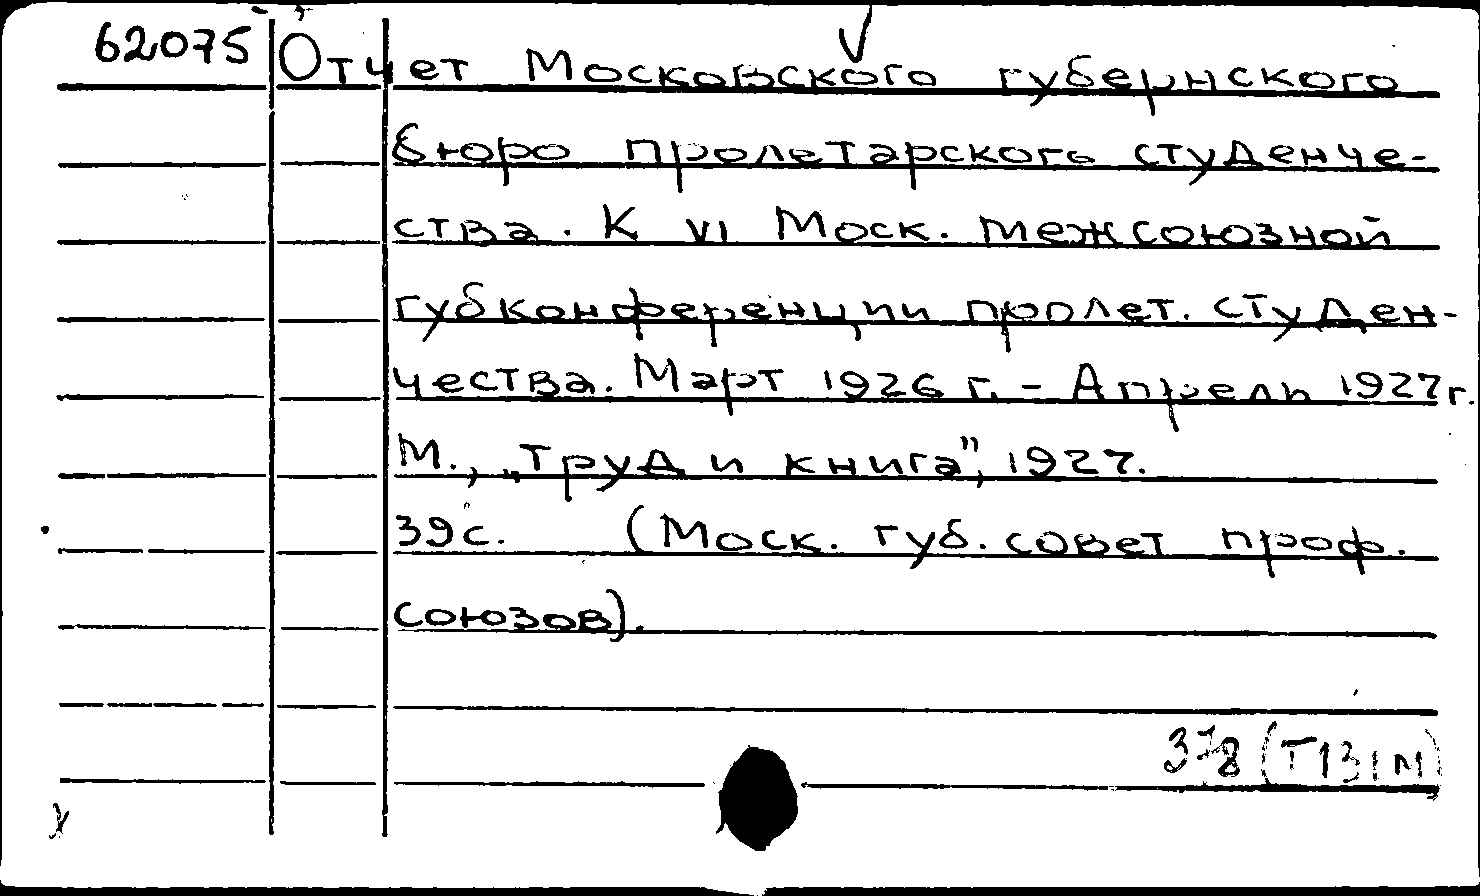 62075 Отчет Московского губернского
бюро пролетарского студенче-
ства. К VI Моск. межсоюзной
губконференции пролет. студен-
чества. Март 1926 г. - Апрель 1927г.
М., „Труд и книга", 1927.
39с. (Моск. губ. совет проф.
союзов).
378 (Т131м)